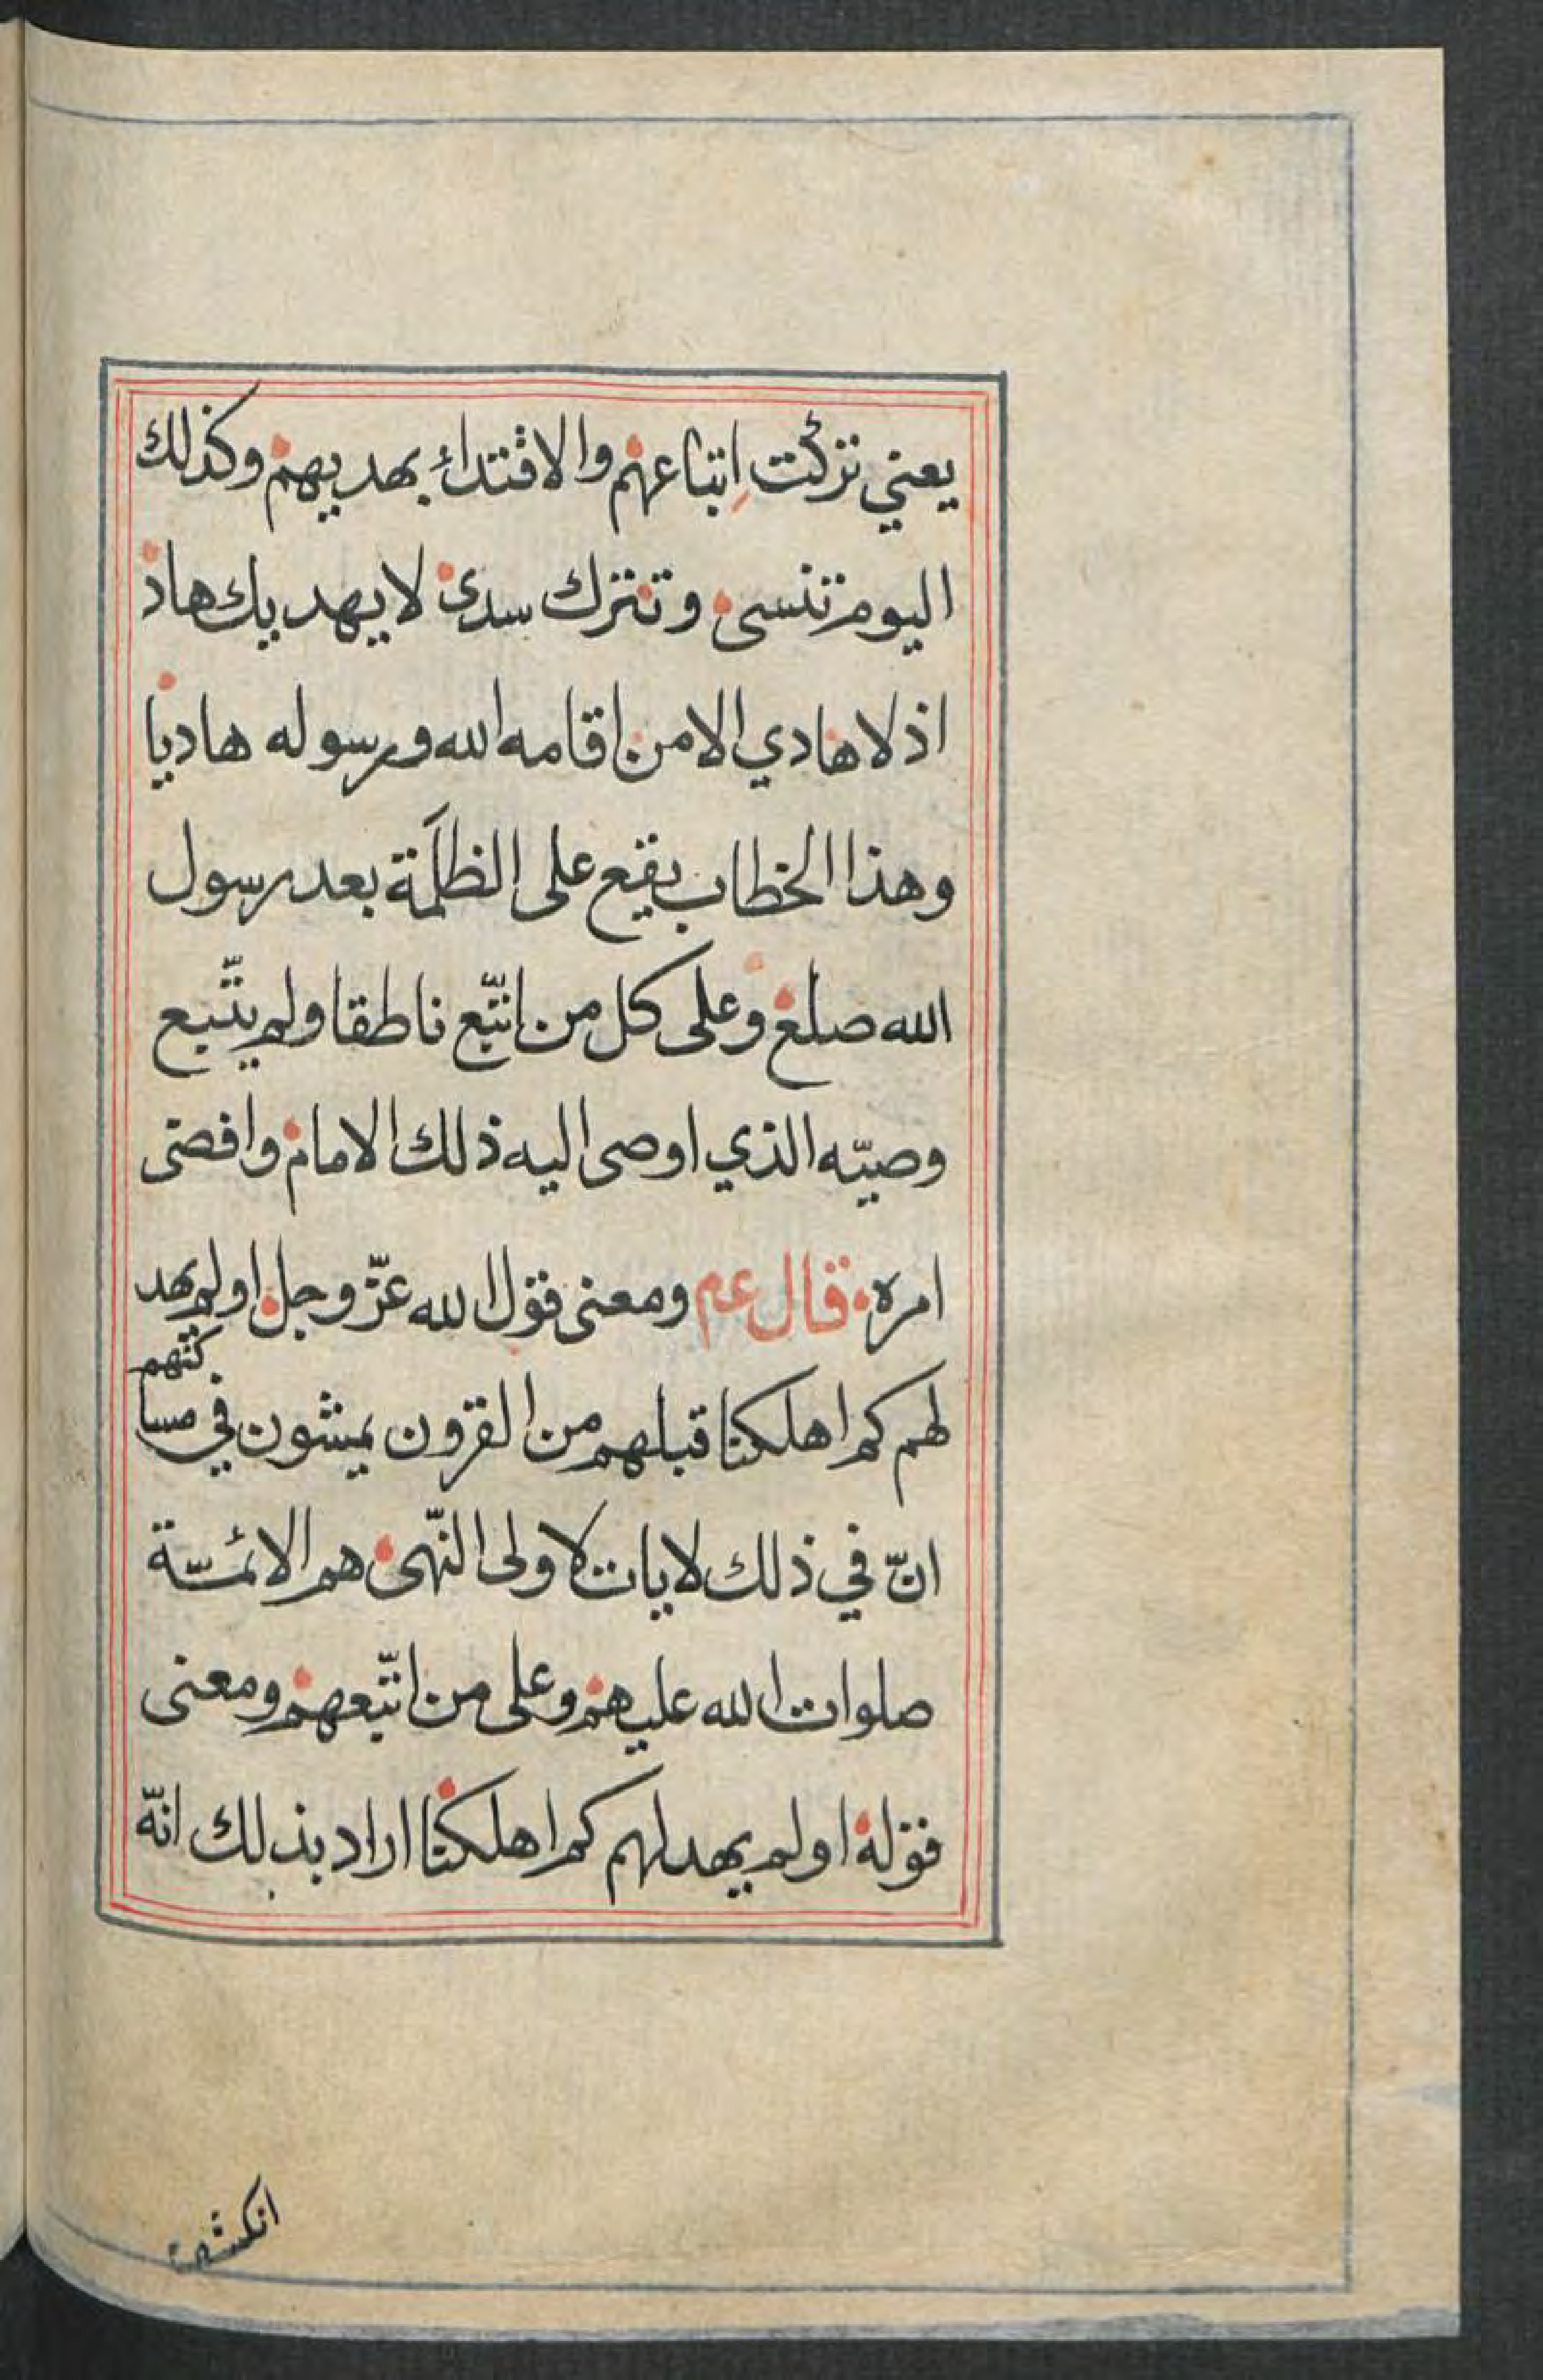 يعني تركت اتباعهم والاقتداء بهديهم وكذلك
اليوم تنسى وتترك سدى لا يهديك هاد
اذ لا هادي الا من اقامه الله ورسوله هاديا
وهذا الخطاب يقع على الظلمة بعد رسول
الله صلع وعلى كل من اتّبع ناطقا ولم يتّبع
وصيّه الذي اوصى اليه ذلك الامام وافضى
امره قال عم ومعنى قول الله عزّ وجل اولم يهد
لهم كم اهلكنا قبلهم من القرون يمشون في مساكنهم
انّ في ذلك لايات لاولى النّهى هم الائمّة
صلوات الله عليهم وعلى من اتّبعهم ومعنى
قوله اولم يهد لهم كم اهلكنا اراد بذلك انّه
انكشفت